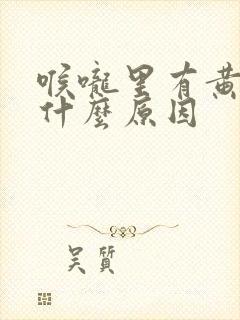 喉嚨里有黃
什麼原因
吴質